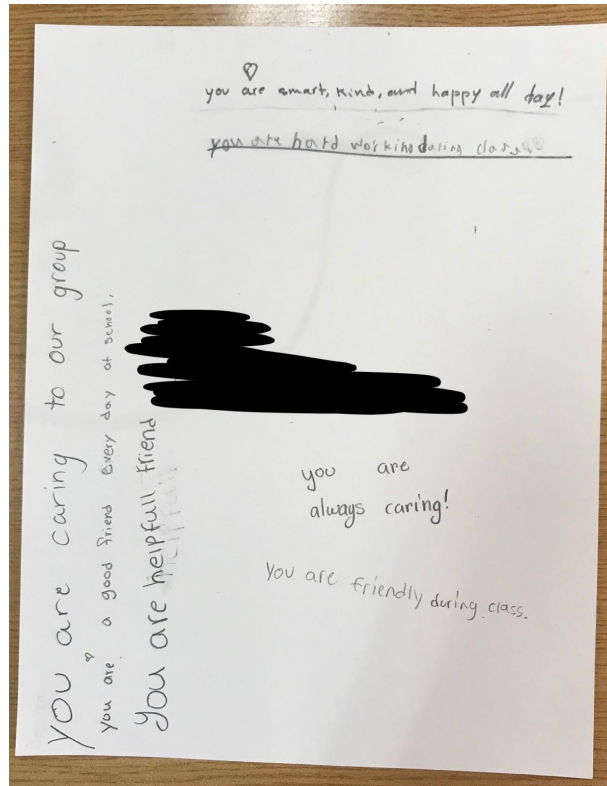 you are smart, kind, and happy all day!
you are hard working during class
you are caring to our group
you are a good friend every day at school.
you are helpfull friend
you are
always caring!
you are friendly during class.